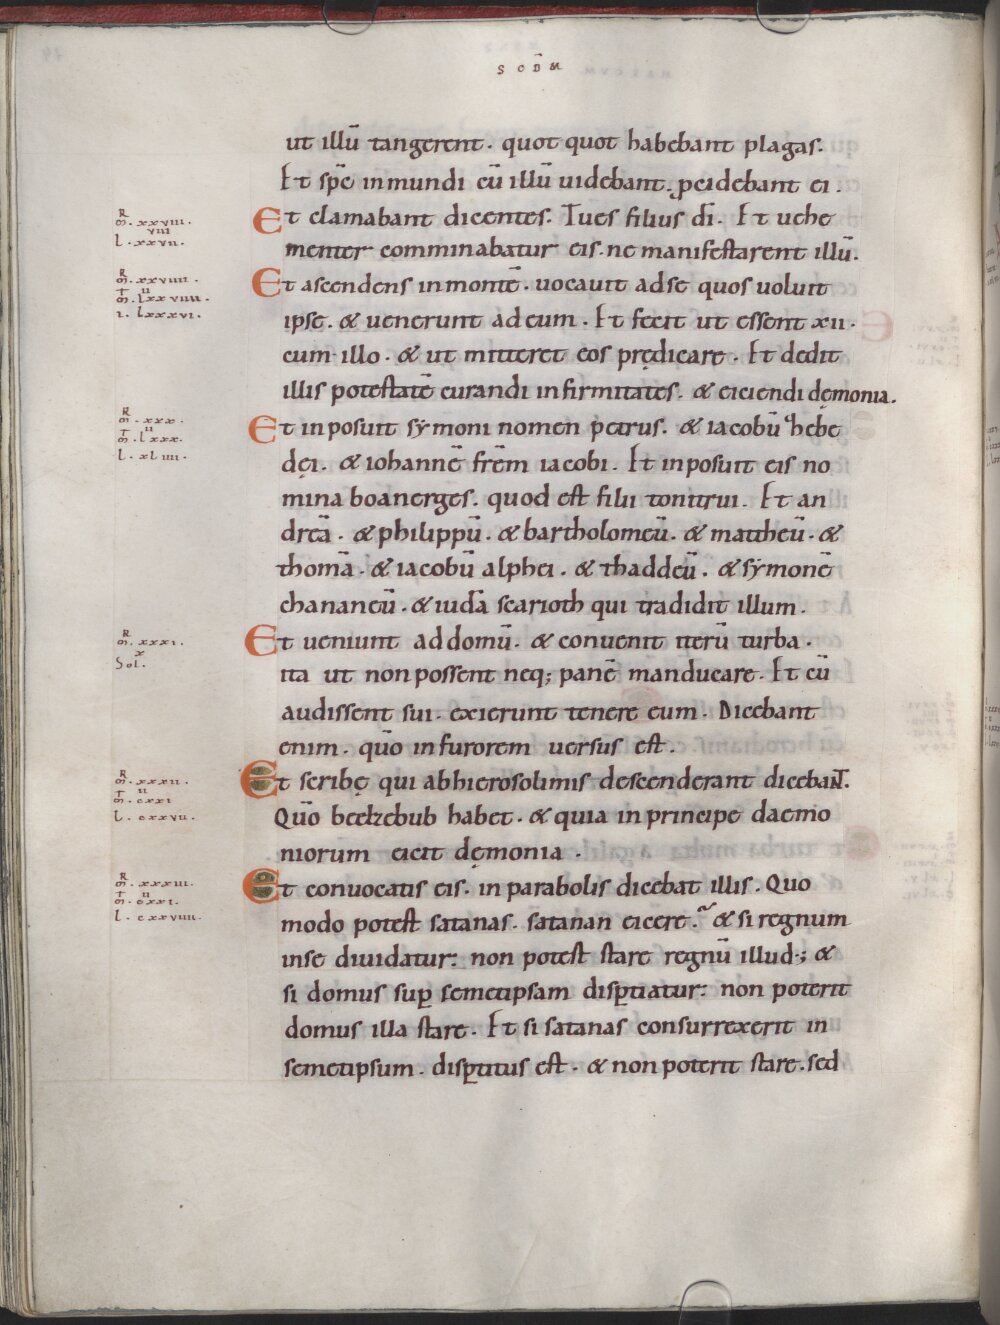 SCDM
ut illū tangerent. quot quot habebant plagas.
Et sp̄s inmundi cū illū uidebant. pcidebant ei.
Et clamabant dicentes. Tu es filius dī. Et uehe
menter comminabatur eis. ne manifestarent illū.
R
M. xxviii.
viii
L. xxvii.
Et ascendens in montē. uocauit ad se quos uoluit
ipse. & uenerunt ad eum. Et fecit ut essent xii.
cum illo. & ut mitteret eos prędicare. Et dedit
illis potestatē curandi infirmitates. & eiciendi dęmonia.
R
M. xxviiii.
ii
M. lxxviiii.
l. lxxxvi.
Et inposuit sýmoni nomen petrus. & iacobū hebe
dęi. & iohannē frēm iacobi. Et inposuit eis no
mina boanerges. quod est filii tonitrui. Et an
dreā. & philippū. & bartholomeū. & mattheū. &
thomā. & iacobū alphei. & thaddeū. & sýmonē
chananeū. & iudā scarioth qui tradidit illum.
R
M. xxx.
ii
M. lxxx.
L. xliiii.
Et ueniunt ad domū. & conuenit iterū turba.
ita ut non possent neq; panē manducare. Et cū
audissent sui. exierunt tenere eum. Dicebant
enim. quō in furorem uersus est.
R
M. xxxi.
x
Sol.
Et scribę qui ab hierosolimis descenderant dicebaNT.
Quō beelzebub habet. & quia in principe daemo
niorum eicit dęmonia.
R
M. xxxii.
ii
M. cxxi
L. cxxvii.
Et conuocatis eis. in parabolis dicebat illis. Quo
modo potest satanas. satanan eicere. & si regnum
in se diuidatur: non potest stare regnū illud.; &
si domus sup semetipsam disptiatur: non poterit
domus illa stare. Et si satanas consurrexerit in
semetipsum. disptitus est. & non poterit stare. sed
R
M. xxxiii.
ii
M. cxxi.
L. cxxviiii.